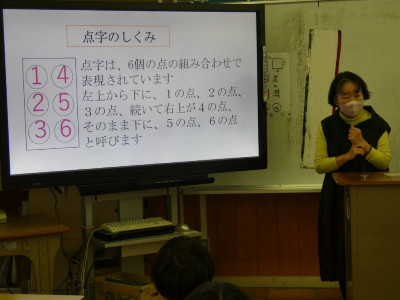 点字のしくみ
1 4
2 5
3 6
点字は、6個の点の組み合わせで
表現されています
左上から下に、1の点、2の点、
3の点、続いて右上が4の点、
そのまま下に、5の点、6の点
と呼びます